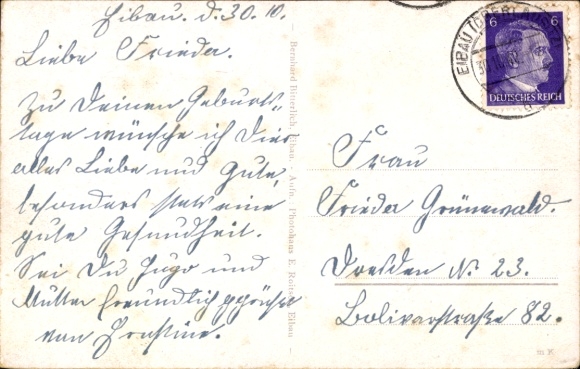 Eibau. d. 30. 10.
Liebe Frieder.
Zu Deinen Geburts-
tage wünsche ich Dir
alles Liebe und Gute,
besonders stets eine
gute Gesundheit.
Sei Du Hugo und
Mutter freundlich gegrüßt
von
Bernhard Bitterlich, Eibau. Aufn.: Photohaus E. Eibau
EIBAU (OBERLAUSITZ)
6 6
DEUTSCHES REICH
Frau
Frieder Grünewald.
Dresden N. 23.
Bolivarstraße 82.